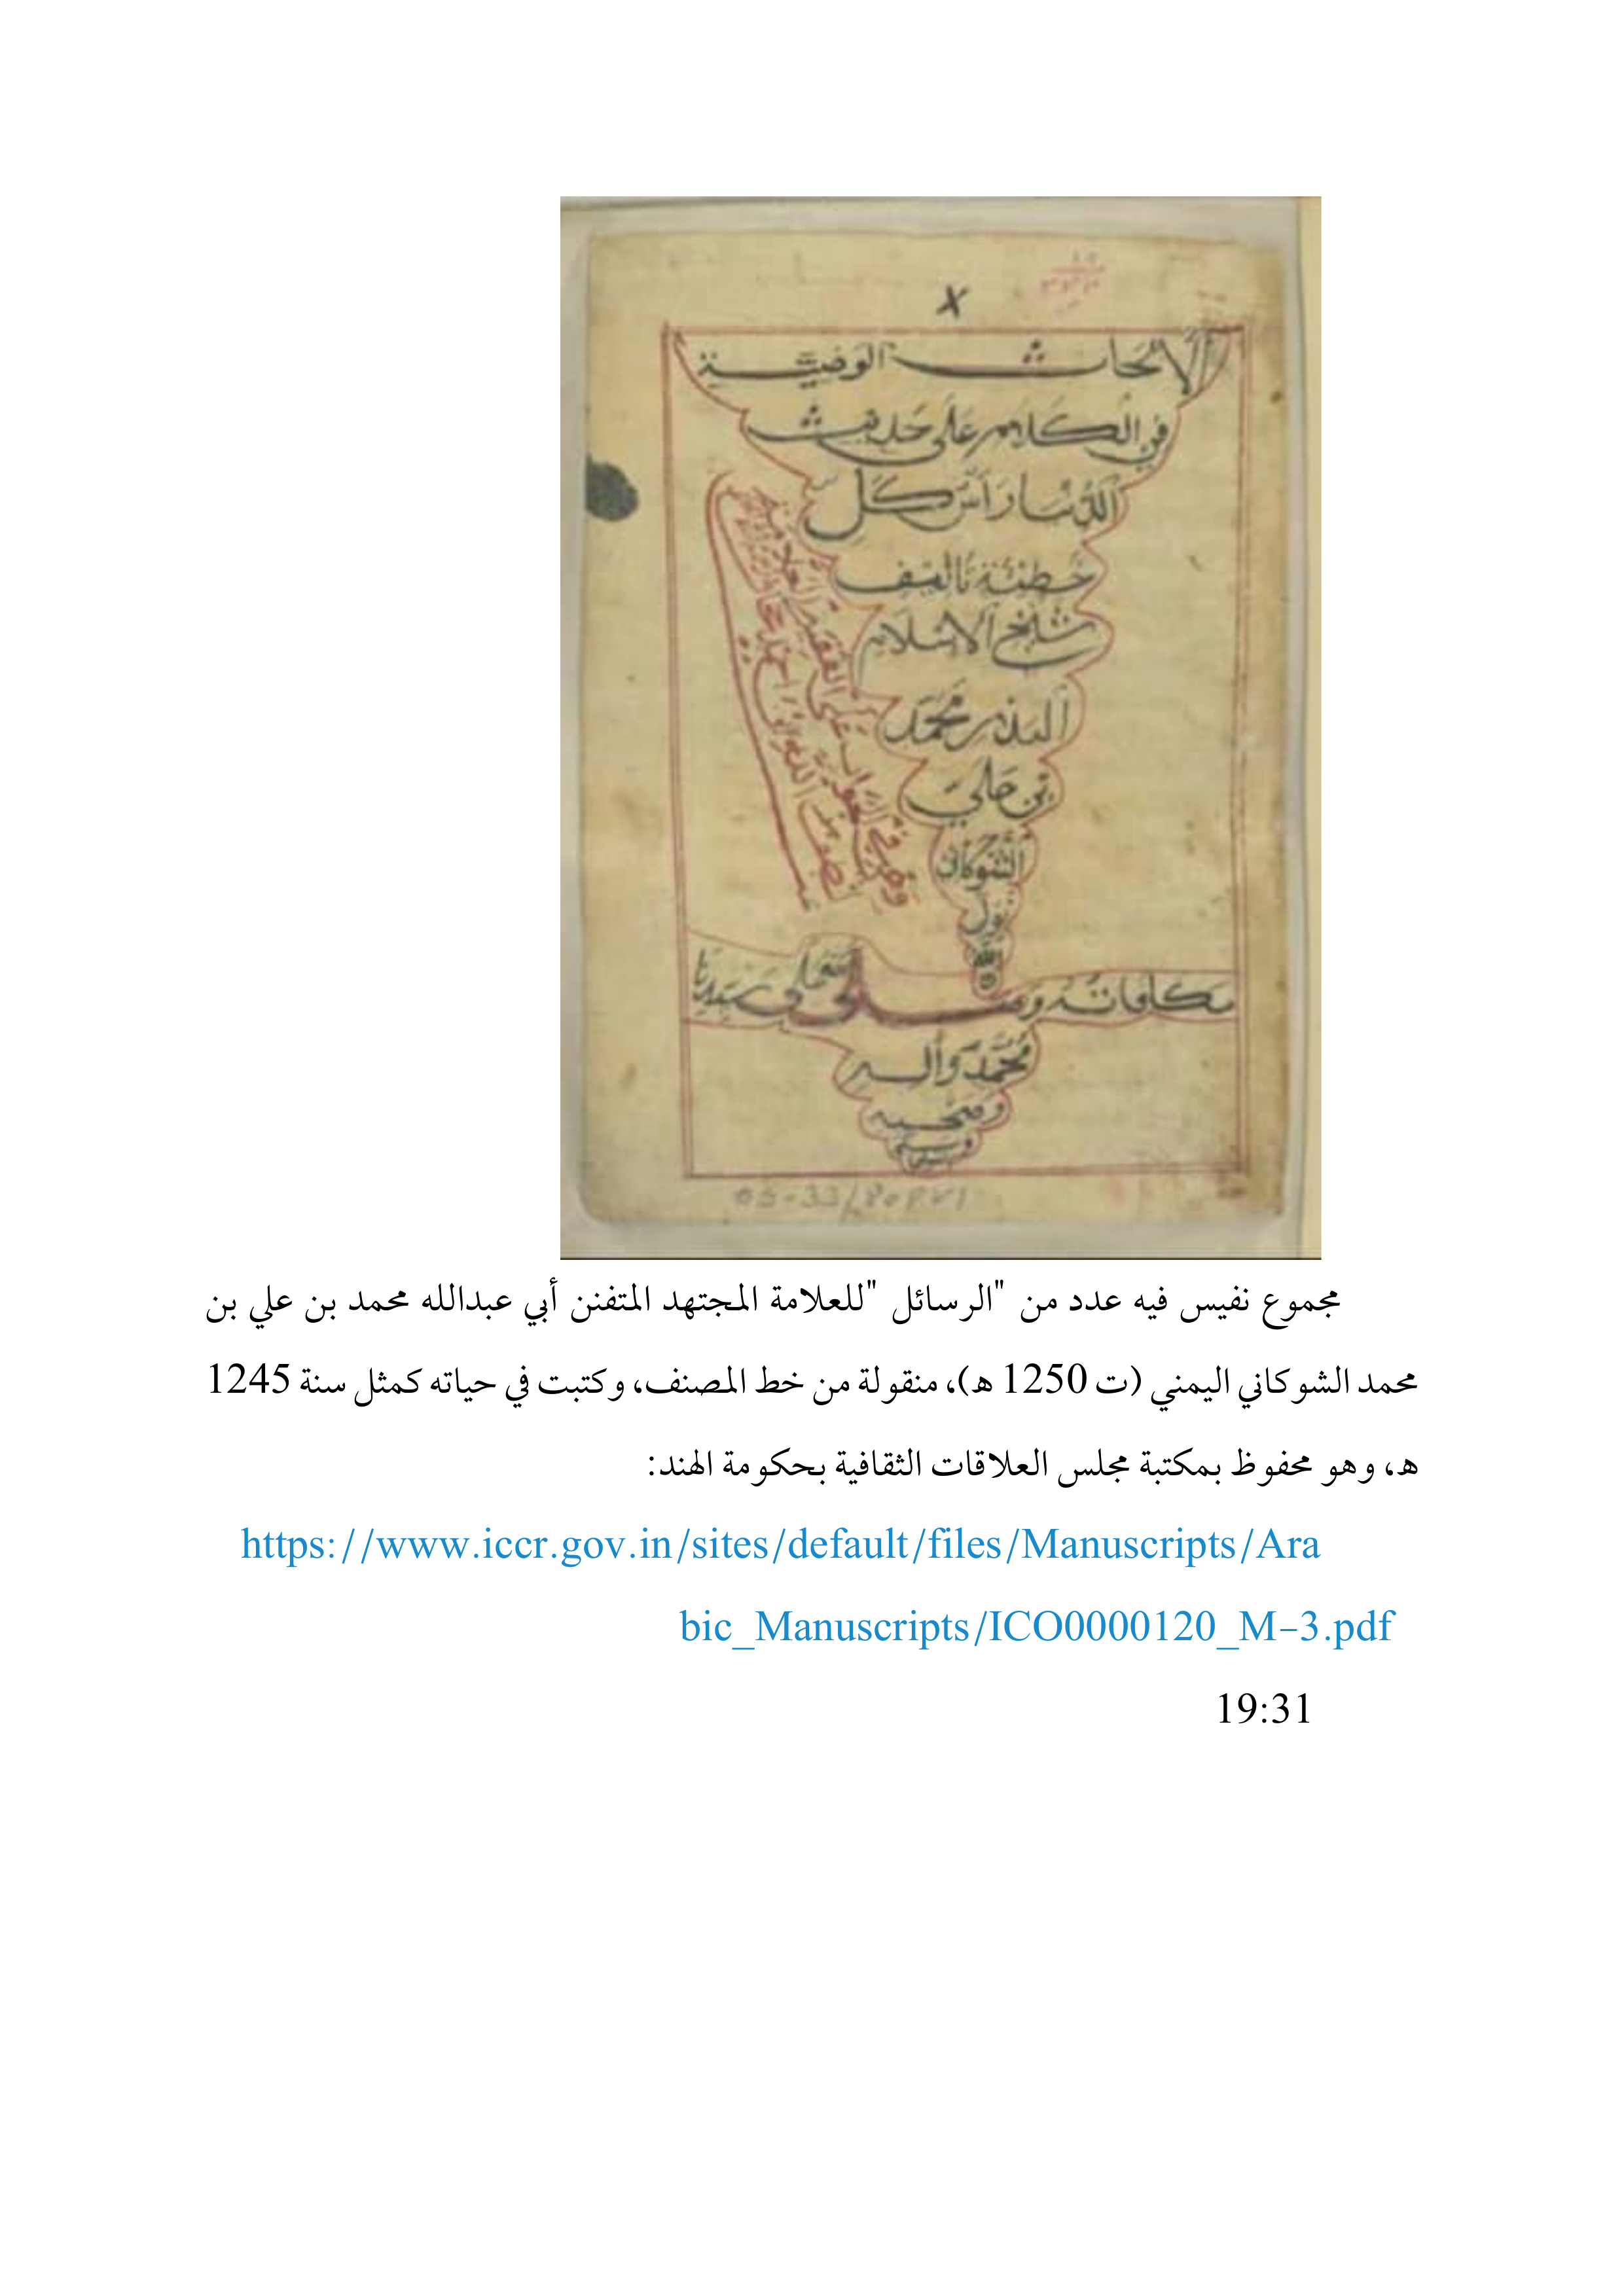 الأبحاث الوضيّة
في الكلام على حديث
الدنيا رأس كل
خطيئة تأليف
شيخ الاسلام
البدر محمد
بن علي
الشوكاني
تولى
الله
مكافاته وصلى على سيدنا
محمد وآله
وصحبه
وسلم
مجموع نفيس فيه عدد من "الرسائل "للعلامة المجتهد المتفنن أبي عبدالله محمد بن علي بن
محمد الشوكاني اليمني (ت 1250 هـ)، منقولة من خط المصنف، وكتبت في حياته كمثل سنة 1245
هـ، وهو محفوظ بمكتبة مجلس العلاقات الثقافية بحكومة الهند:
https://www.iccr.gov.in/sites/default/files/Manuscripts/Ara
bic_Manuscripts/ICO0000120_M-3.pdf
19:31